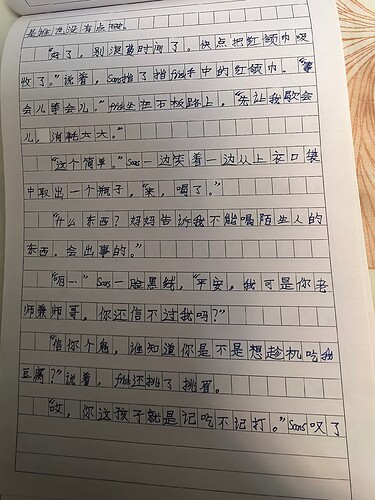 是谁也没有点
“好了，别浪费时间了。快点把红领巾吸
收了。”说着，Sans指了指frisk手中的红领巾。“等
会儿等会儿。”frisk坐在石板路上，“先让我歇会
儿，消耗太大。”
“这个简单。”Sans一边笑着一边从上衣口袋
中取出一个瓶子，“来，喝了。”
“什么东西？妈妈告诉我不能喝陌生人的
东西，会出事的。”
“呃…”Sans一脸黑线，“平安，我可是你老
师兼师哥，你还信不过我吗？”
“信你个鬼，谁知道你是不是想趁机吃我
豆腐？”说着，frisk还挑了挑眉。
“哎，你这孩子就是记吃不记打。”Sans叹了